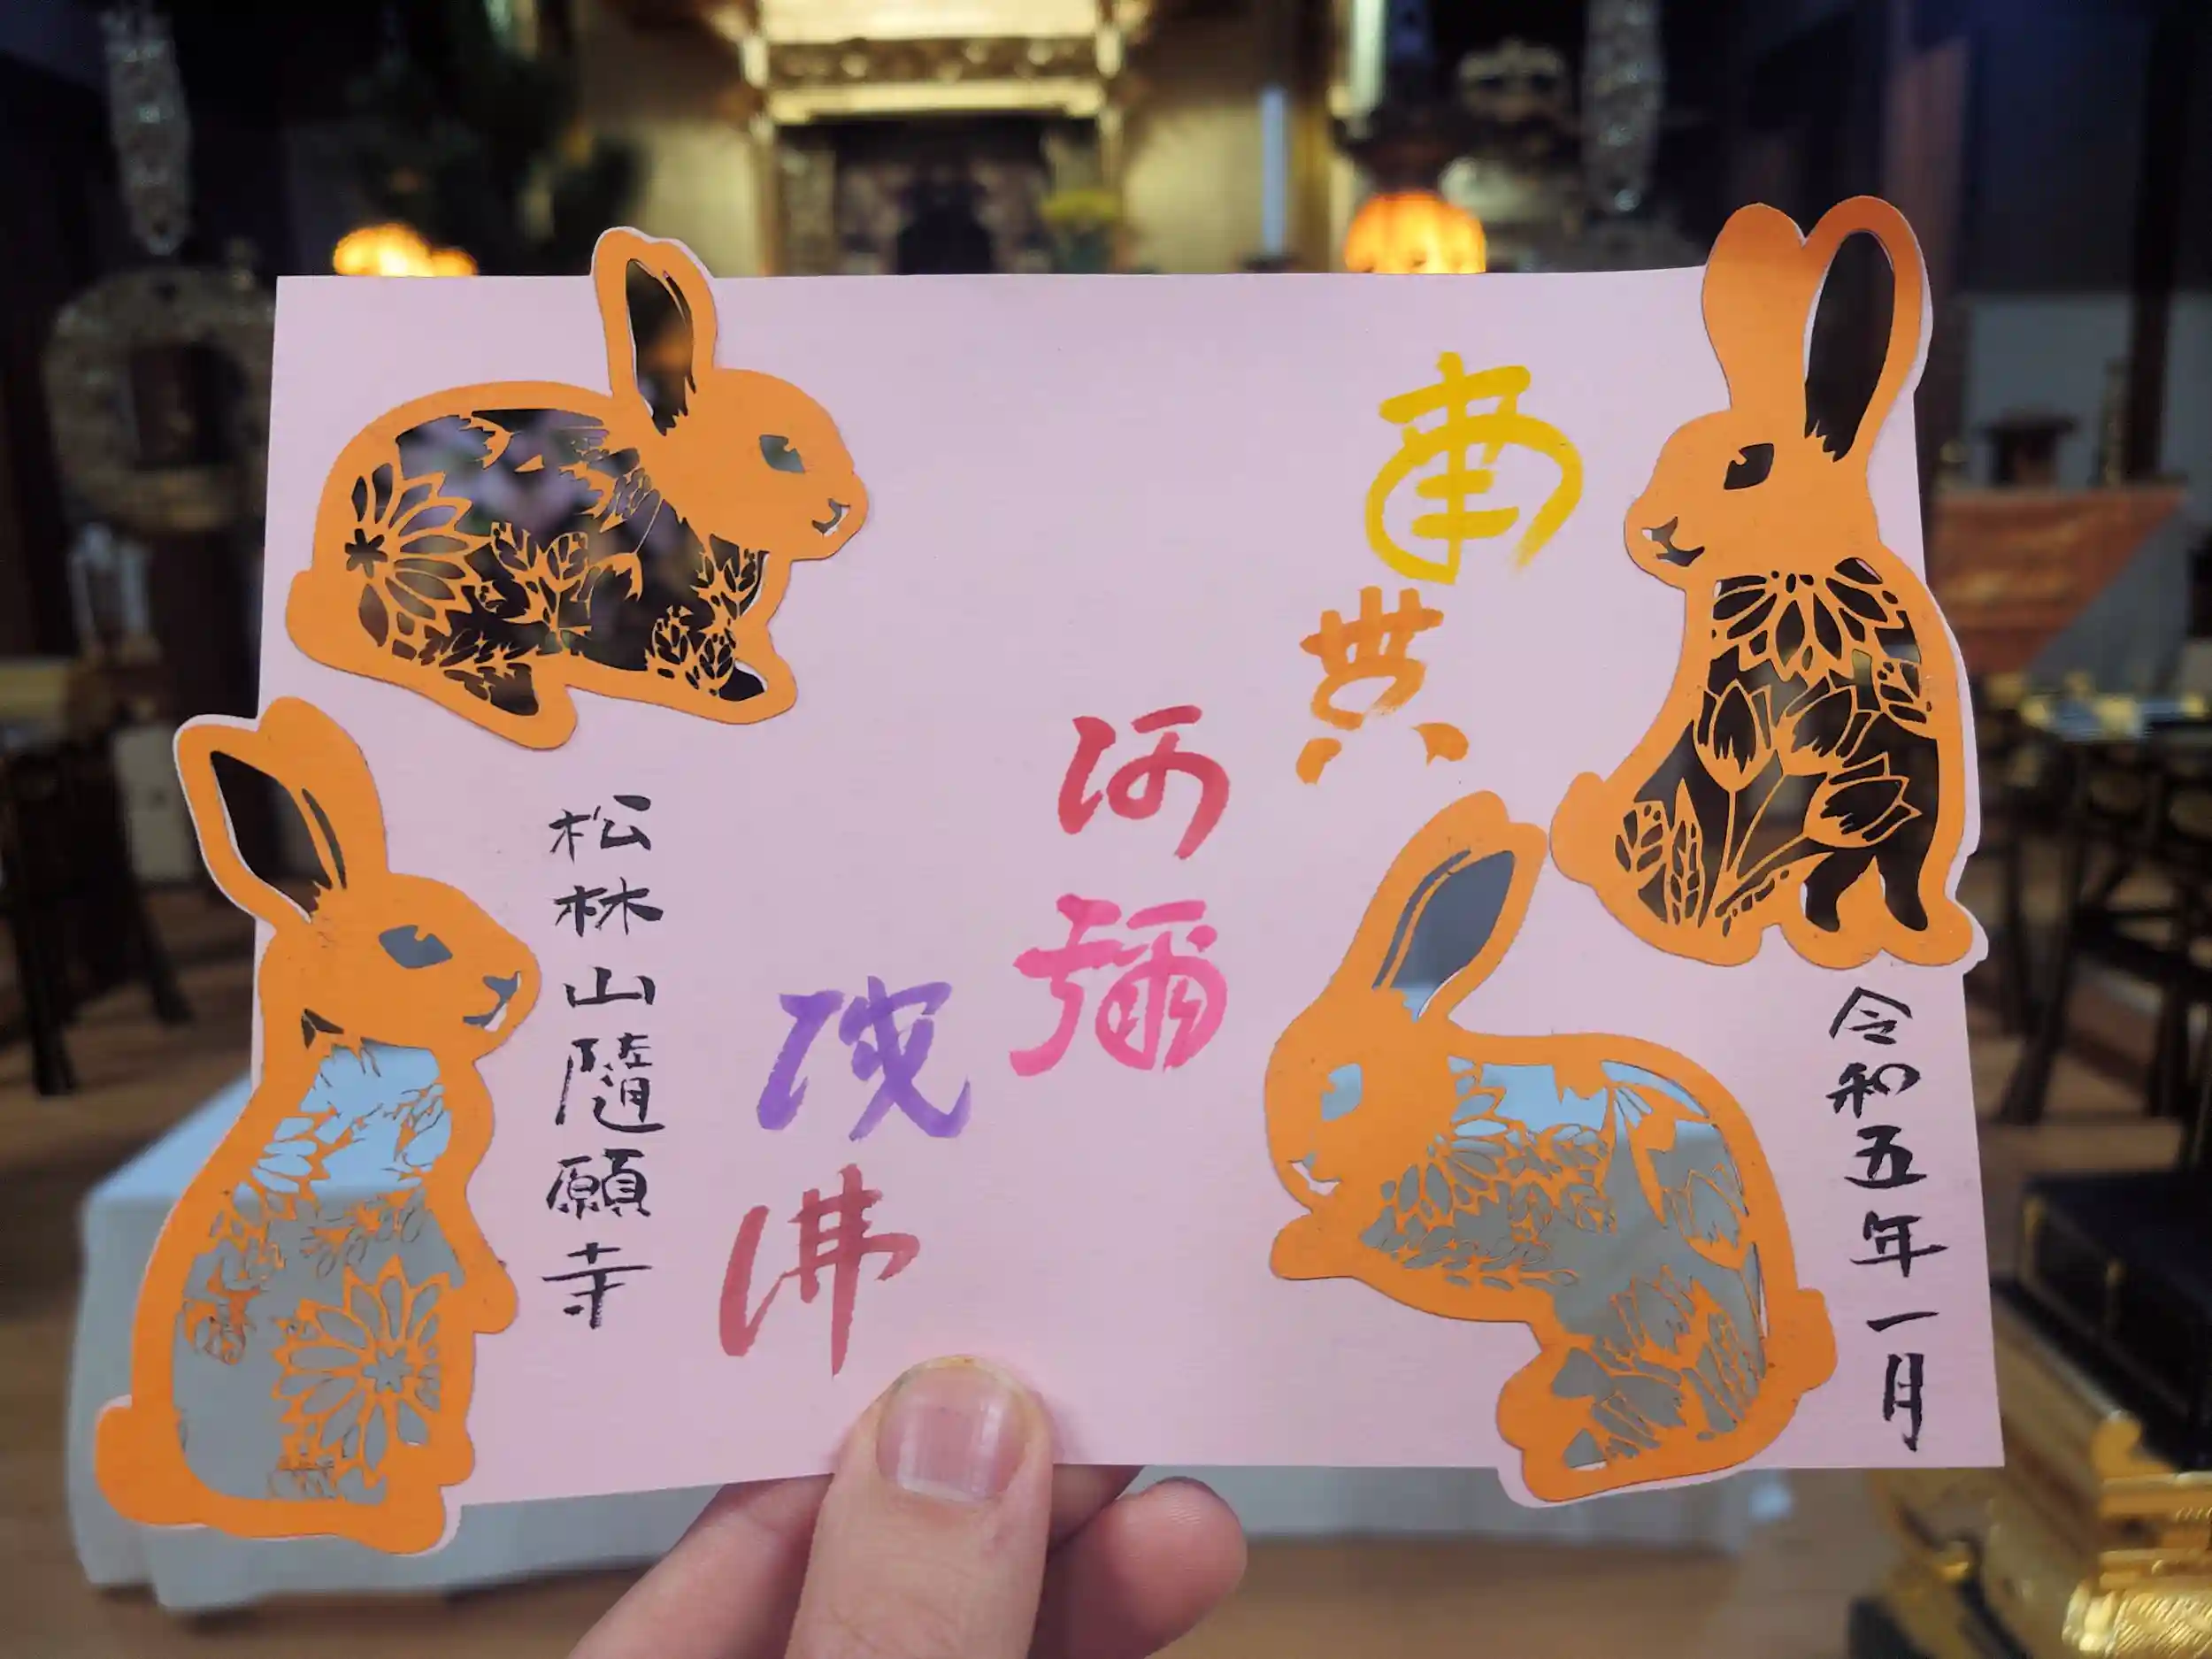 令和五年一月
南無
阿彌
陀佛
松林山隨願寺